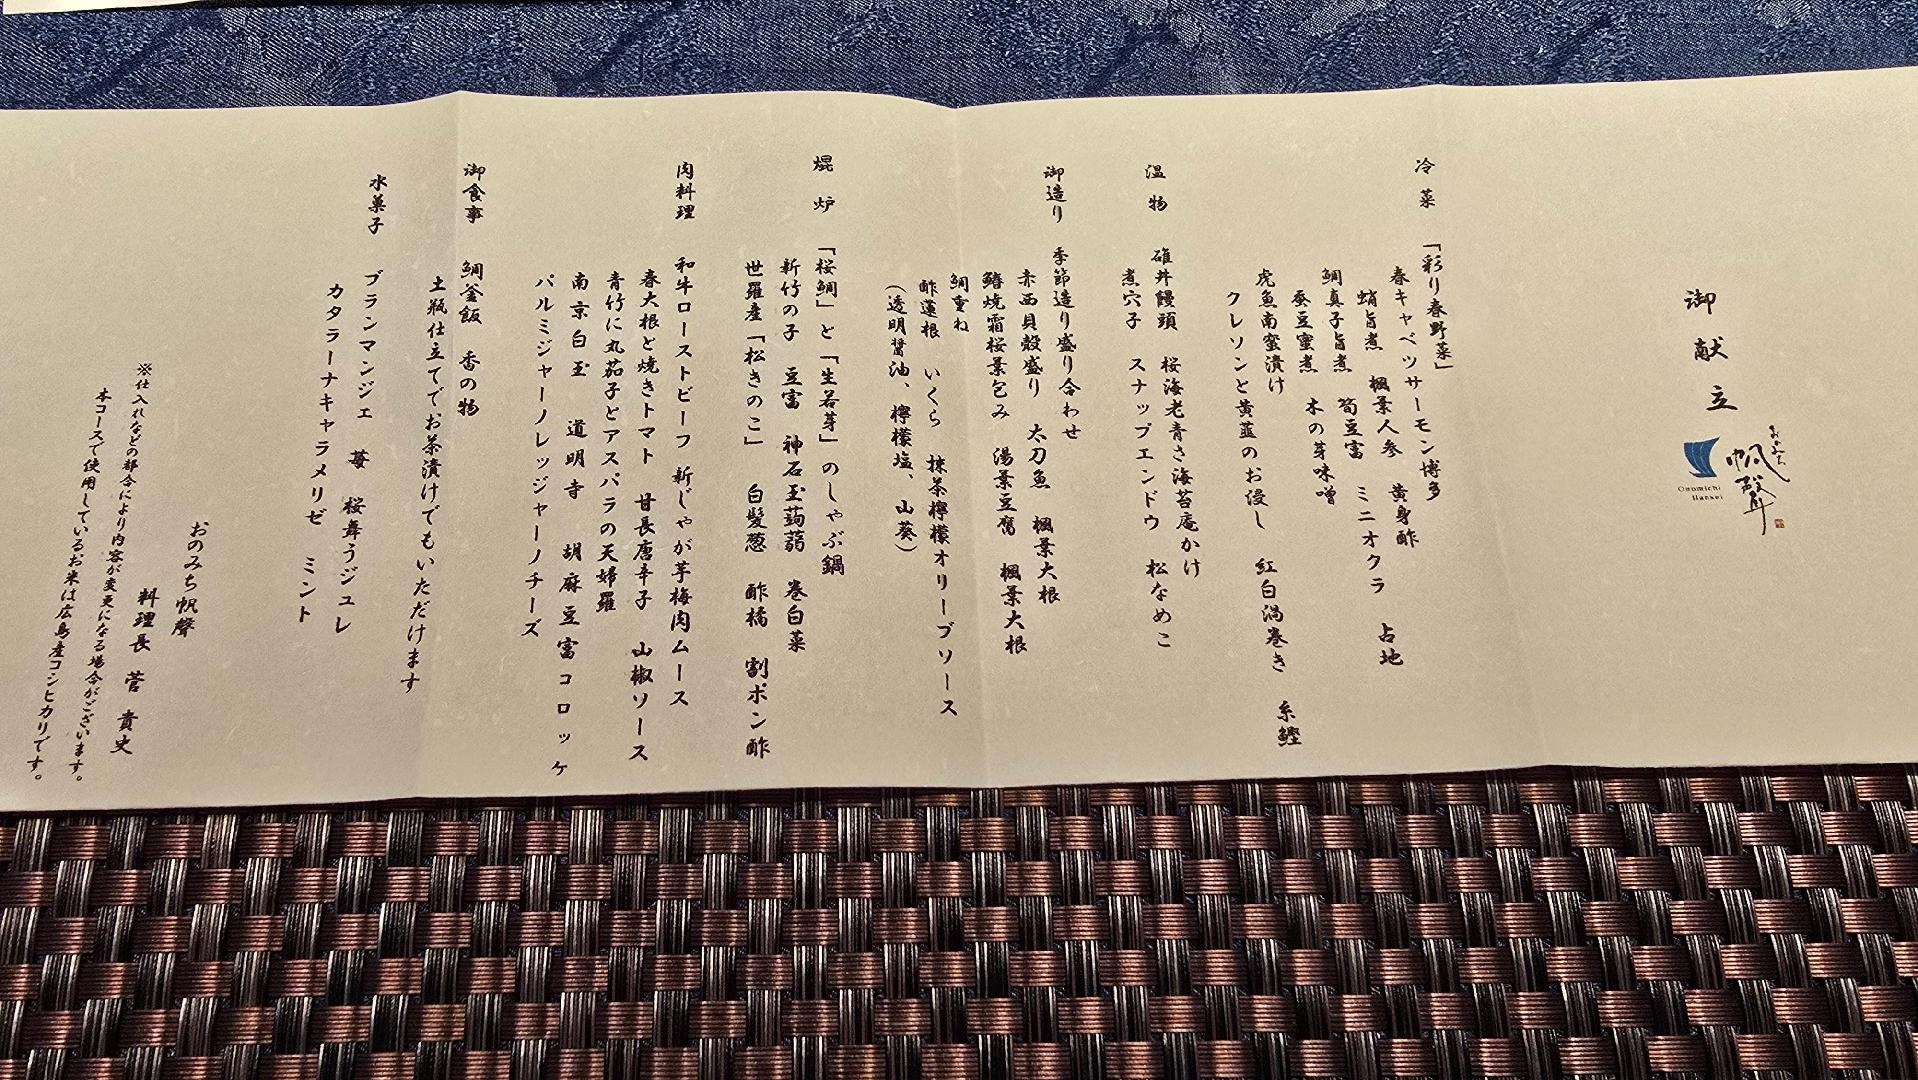 御献立
おのみち
帆聲
Onomichi
Hansei
冷菜 「彩り春野菜」
春キャベツサーモン博多 黄身酢 占地
蛸旨煮 楓葉人参 ミニオクラ
鯛真子旨煮 筍豆富
蚕豆蜜煮 木の芽味噌
虎魚南蛮漬け 紅白渦巻き 糸鰹
クレソンと黄韮のお浸し
温物 碓井饅頭 桜海老青さ海苔庵かけ
煮穴子 スナップエンドウ 松なめこ
御造り 季節造り盛り合わせ
赤西貝殻盛り 太刀魚 楓葉大根
鰆焼霜桜葉包み 湯葉豆腐 楓葉大根
鯛重ね
酢蓮根 いくら 抹茶檸檬オリーブソース
(透明醤油、檸檬塩、山葵)
焜炉 「桜鯛」と「生若芽」のしゃぶ鍋
新竹の子 豆富 神石玉蒟蒻 巻白菜
世羅産「松きのこ」 白髪葱 酢橘 割ポン酢
肉料理 和牛ローストビーフ 新じゃが芋梅肉ムース
春大根と焼きトマト 甘長唐辛子 山椒ソース
青竹に丸茄子とアスパラの天婦羅
南京白玉 道明寺 胡麻豆富コロッケ
パルミジャーノレッジャーノチーズ
御食事 鯛釜飯 香の物
土瓶仕立てでお茶漬けでもいただけます
水菓子 ブランマンジェ 苺 桜舞うジュレ
カタラーナキャラメリゼ ミント
おのみち帆聲
料理長 菅 貴史
※仕入れなどの都合により内容が変更になる場合がございます。
本コースで使用しているお米は広島産コシヒカリです。